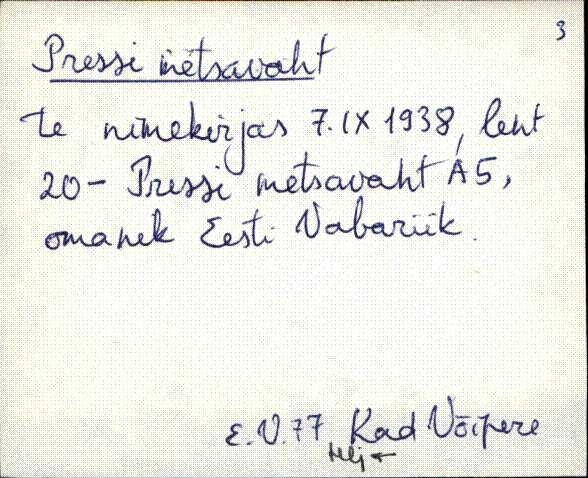 3
Pressi metsavaht
te nimekirjas 7.IX 1938, leht
20 - Pressi metsavaht A5,
omanek Eesti Vabariik.
E.V.77 Kad Võipere